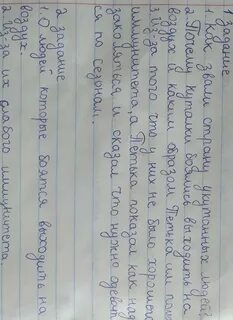 1 Задание
1. Как звали страну укутанных людей
2 Почему кутайки боялись выходить на
воздух и каким образом Петька им помог
3. Из-за того что у них не было хорошего
иммунитета, а Петька показал как надо
закаляться и сказал что нужно одевать
ся по сезонам.
2 задание
1. О людей которые боятся выходить на
воздух.
2 Из-за их слабого иммунитета.